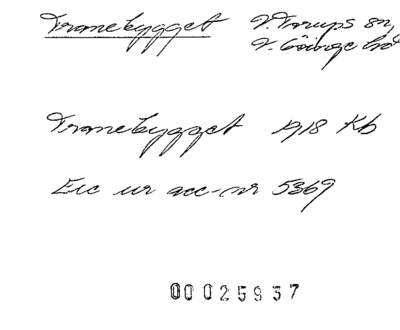 Tranebygget V. Torups sn,
V. Göinge hd
Tranebygget 1918 Kb
Exc ur acc-nr 5369
00025937